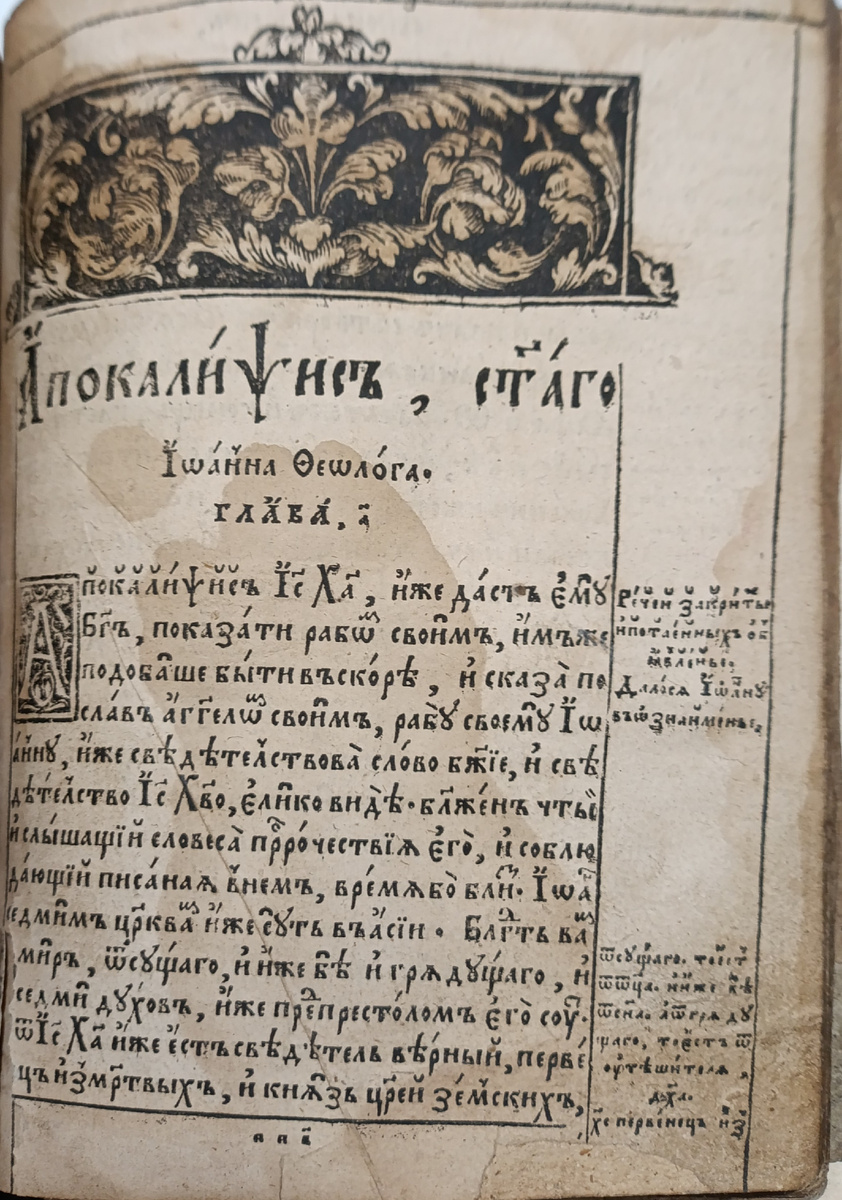 А҆покали́ѱисъ, ст҃а́гѡ
І҆ѡа́нна Ѳеѡло́га.
глава̀, а҃
А҆покали́ѱисъ І҆с Ха҃, и҆́же да́стъ є҆мꙋ̀
Бг҃ъ, показа́ти рабѡⷨ свои҆мъ, и҆́мъже
подоба́ше бы́ти въско́рѣ, и҆ сказа̀ по
сла́въ а҆́гг҃елѡⷨ свои҆мъ, рабꙋ̀ своемꙋ̀ І҆ѡ
а́ннꙋ, и҆́же свѣдѣ́телствова̀ сло́во бж҃їе, и҆ свѣ
дѣ́телство І҆с Хв҃о, є҆ли́ко ви́дѣ. блаже́нъ чты́й
и҆ слы́шащїй словеса̀ прⷪ҇ро́чествїѧ є҆го̀, и҆ соблю
да́ющїй писа́наѧ в̾немъ, вре́мѧ бо̀ бли҆ⷥ. І҆ѡа҃
седми́мъ цр҃кваⷨ и҆́же сꙋ́ть въ а҆сі́и. Блгⷣть ваⷨ
ми́ръ, ѿ сꙋ́щаго, и҆ и҆́же бѣ̀ и҆ грѧдꙋ́щаго, и҆
седми́ дꙋ́ховъ, и҆́же преⷣ престо́ломъ є҆го̀ соꙋ́.
ѿ І҆с Ха҃ и҆́же є҆́стъ свѣдѣ́тель вѣ́рный, перве́
цъ и҆з̾ ме́ртвыхъ, и҆ кнѧ́зь цр҃е́й зе́мскихъ,
Ре́чей закри́тыⷯ
и҆ потае́нныхъ ѡб̾
ѧвле́нье.
Дало́сѧ І҆ѡа́ннꙋ
въ ѡ҆знайме́нье,
ѿ сꙋ́щаго. то є҆́ст
ѿ ѿца̀. и҆ и҆́же бѣ̀
ѿ сн҃а. а҆ ѿ грѧдꙋ́
щаго, то є҆́стъ ѿ
ᲂу҆тѣши́телѧ,
дх҃а.
Хс҃ пе́рвенецъ и҆з̾